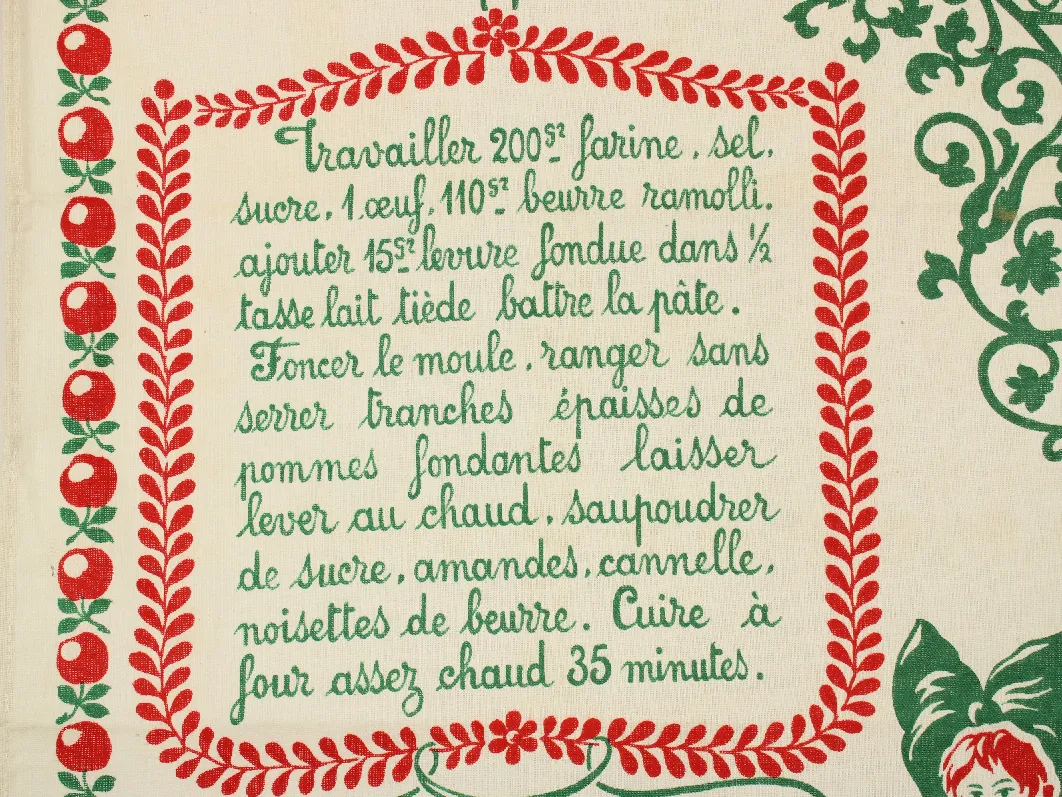 Travailler 200gr farine, sel,
sucre, 1 œuf, 110gr beurre ramolli.
ajouter 15gr levure fondue dans ½
tasse lait tiède battre la pâte.
Foncer le moule, ranger sans
serrer tranches épaisses de
pommes fondantes laisser
lever au chaud, saupoudrer
de sucre, amandes, cannelle,
noisettes de beurre. Cuire à
four assez chaud 35 minutes.